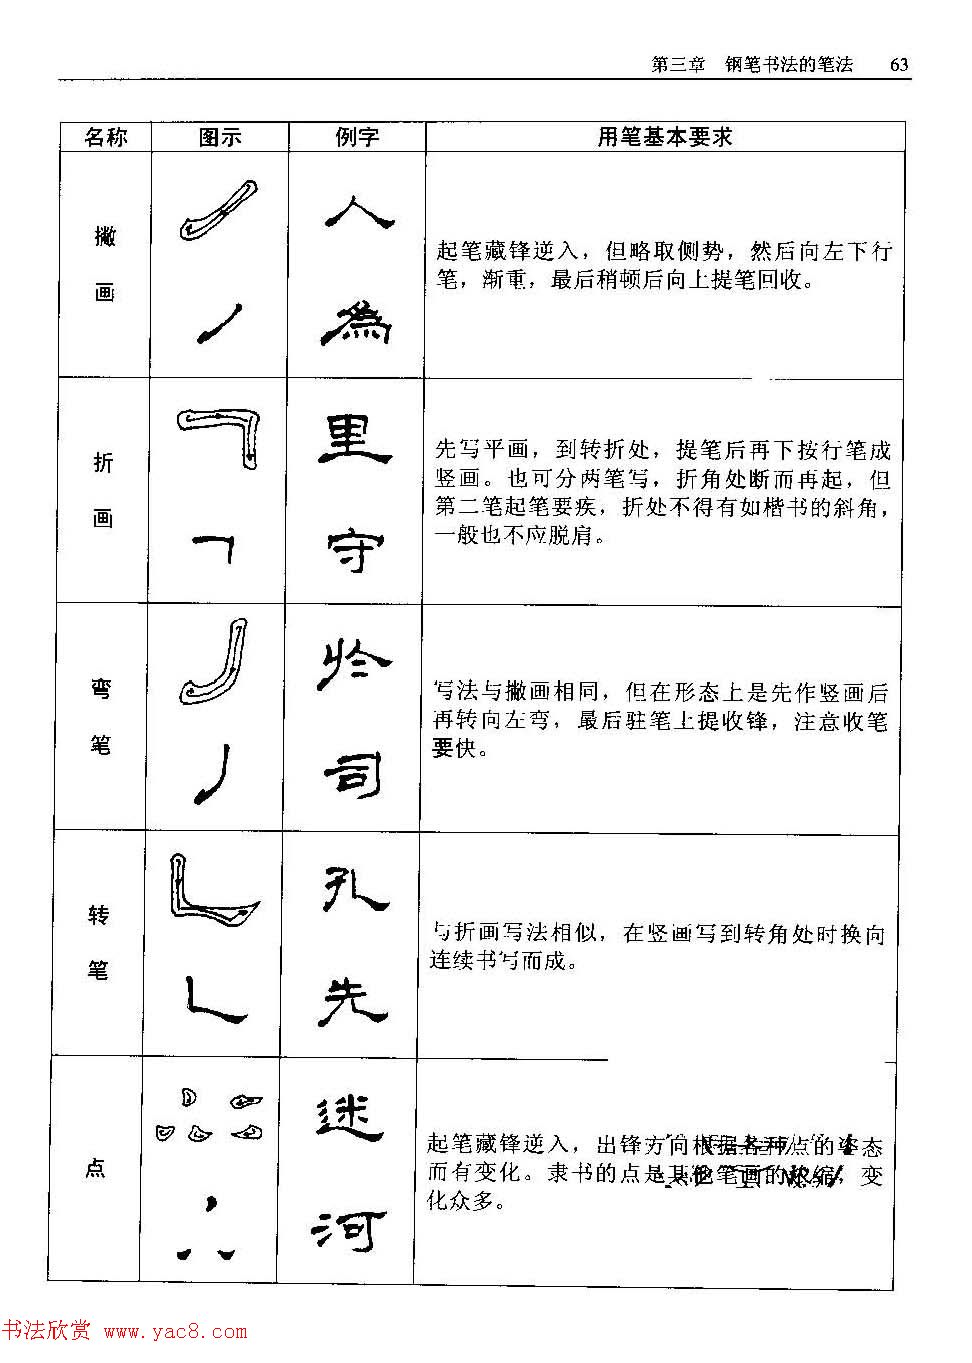 第三章 钢笔书法的笔法 63
名称 图示 例字 用笔基本要求
撇
画
人
為
起笔藏锋逆入，但略取侧势，然后向左下行
笔，渐重，最后稍顿后向上提笔回收。
折
画
里
守
先写平画，到转折处，提笔后再下按行笔成
竖画。也可分两笔写，折角处断而再起，但
第二笔起笔要疾，折处不得有如楷书的斜角，
一般也不应脱肩。
弯
笔
司
写法与撇画相同，但在形态上是先作竖画后
再转向左弯，最后驻笔上提收锋，注意收笔
要快。
转
笔
孔
先
与折画写法相似，在竖画写到转角处时换向
连续书写而成。
点
迷
河
起笔藏锋逆入，出锋方向根据各种点的姿态
而有变化。隶书的点是其他笔画的浓缩，变
化众多。
书法欣赏 www.yac8.com